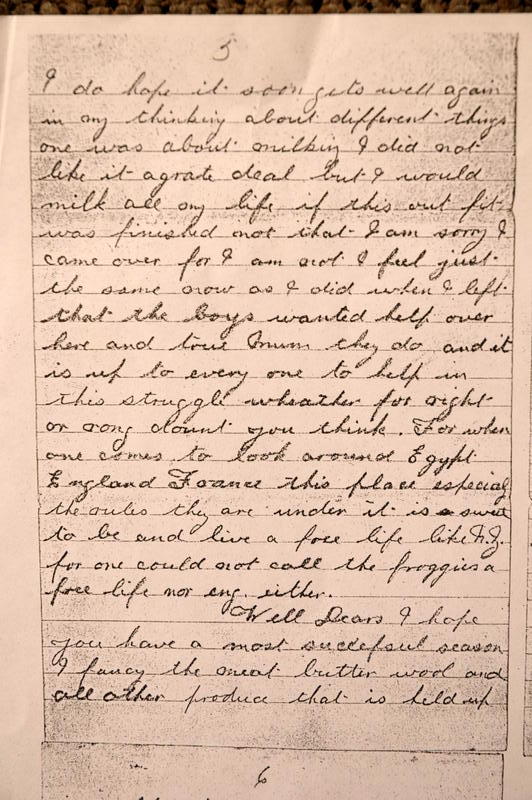 5
I do hope it soon gets well again
in my thinking about different things
one was about milking I did not
like it agrate deal but I would
milk all my life if this out fit
was finished not that I am sorry I
came over for I am not I feel just
the same now as I did when I left
that the boys wanted help over
here and true Mum they do and it
is up to every one to help in
this struggle wheather for right
or rong dount you think. For when
one comes to look around Egypt
England France this place especial
the rules they are under it is a sweet
to be and live a free life like N.Z.
for one could not call the froggies a
free life nor eng. either.
Well Dears I hope
you have a most succefsful season
I fancy the meat butter wool and
all other produce that is held up
6